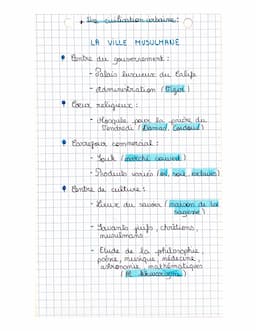 + Une civilisation urbaine:
LA VILLE MUSULMANE
Centre du gouvernement :
- Palais luxueux du Calife
- Administration (Vizir)
Cœur religieux :
- Mosquée pour la prière du
Vendredi (Damas, Cordoue)
Carrefour commercial :
- Souk (marché couvert)
- Produits variés (
Centre de culture :
- Lieux du savoir (maison de la
sagesse)
- Savants juifs, chrétiens,
musulmans
- Etude de la philosophie,
poème, musique, médecine,
astronomie, mathématiques
(Al